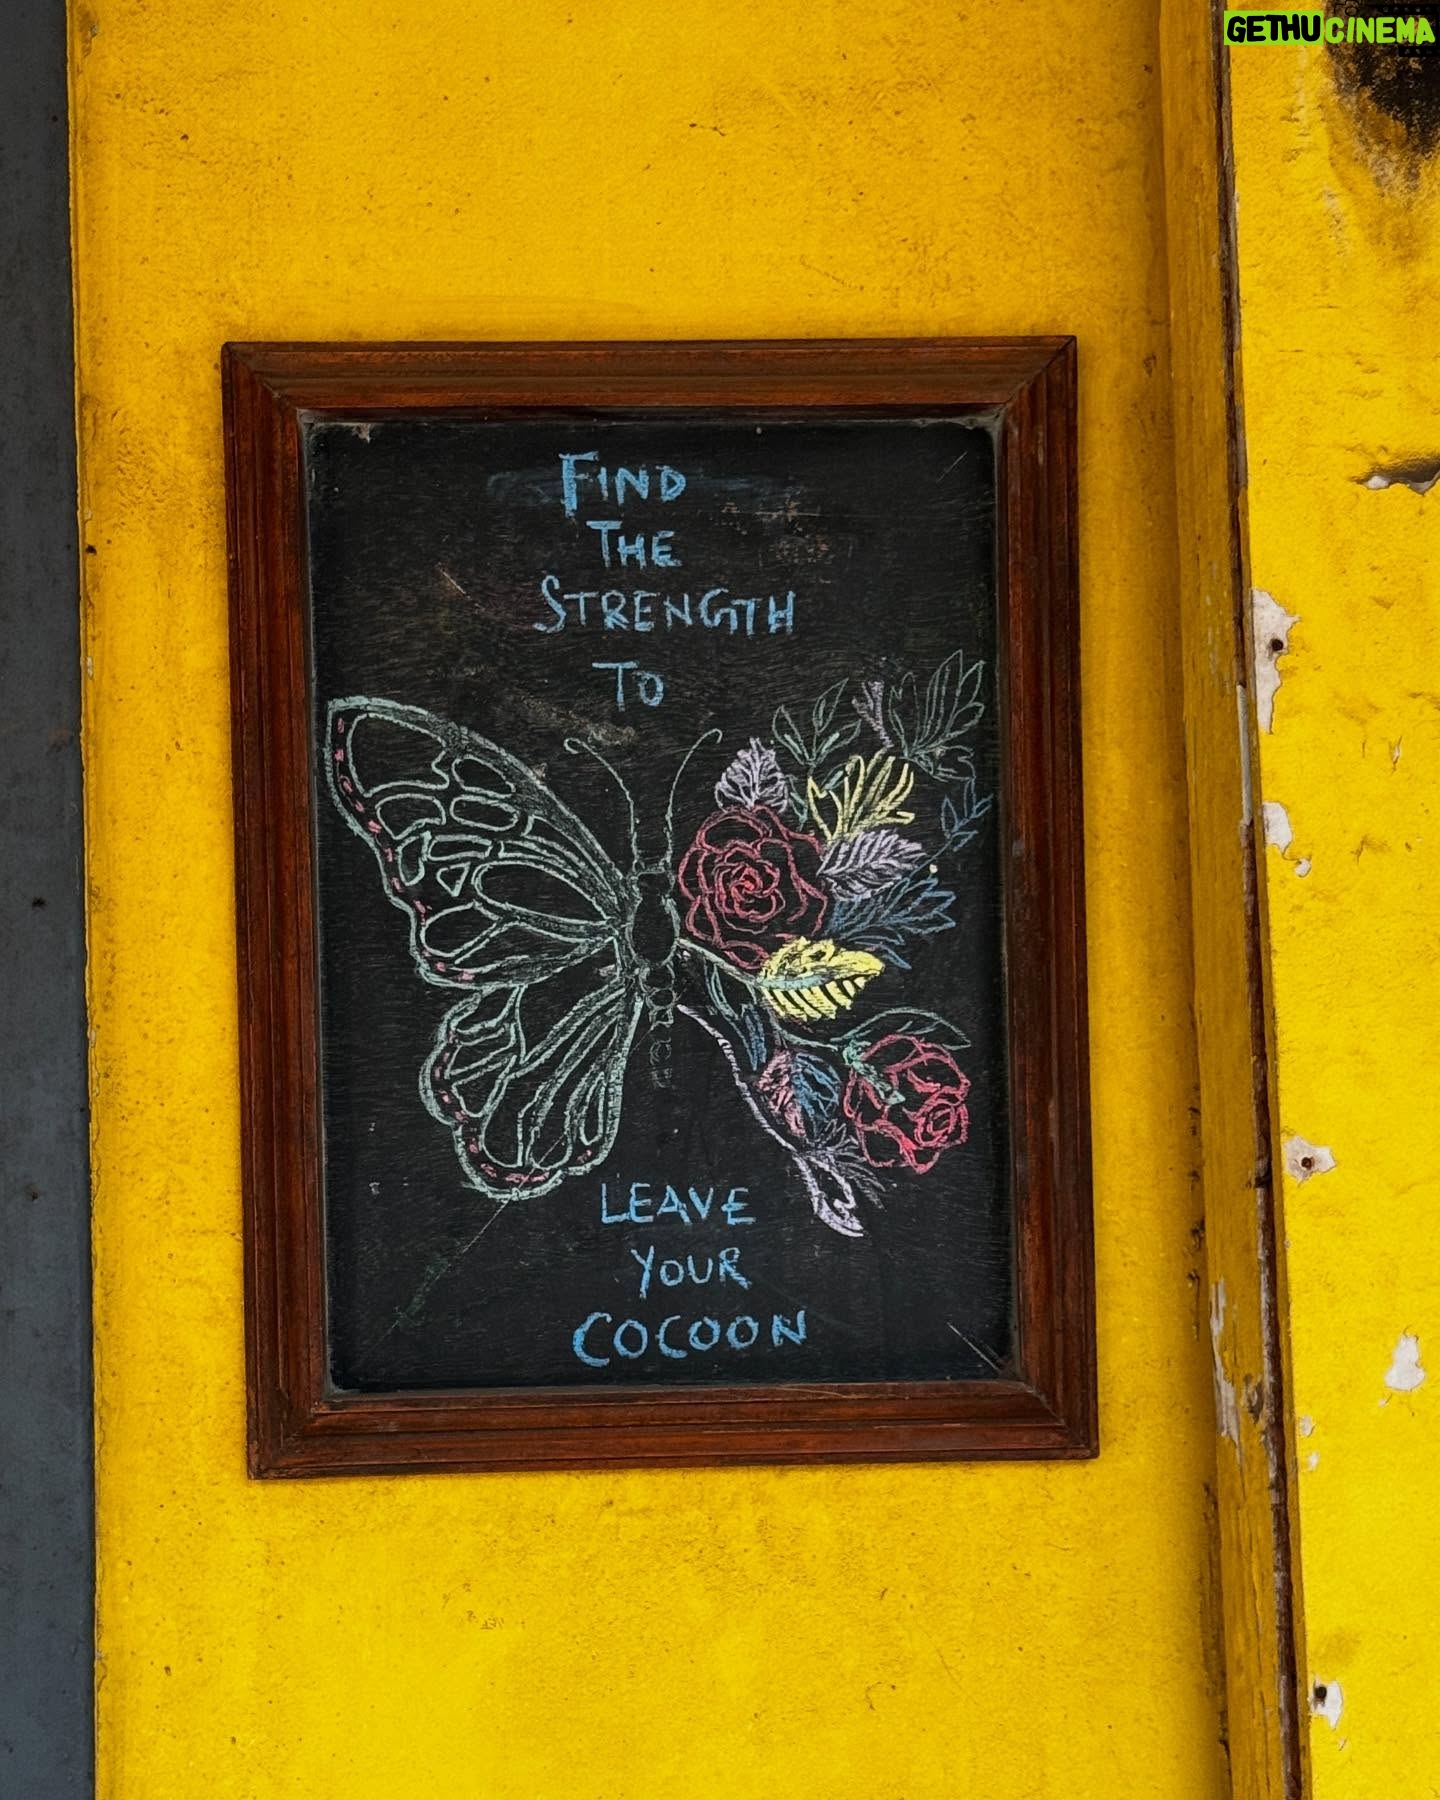 GETHUCINEMA
FIND
THE
STRENGTH
TO
LEAVE
YOUR
COCOON